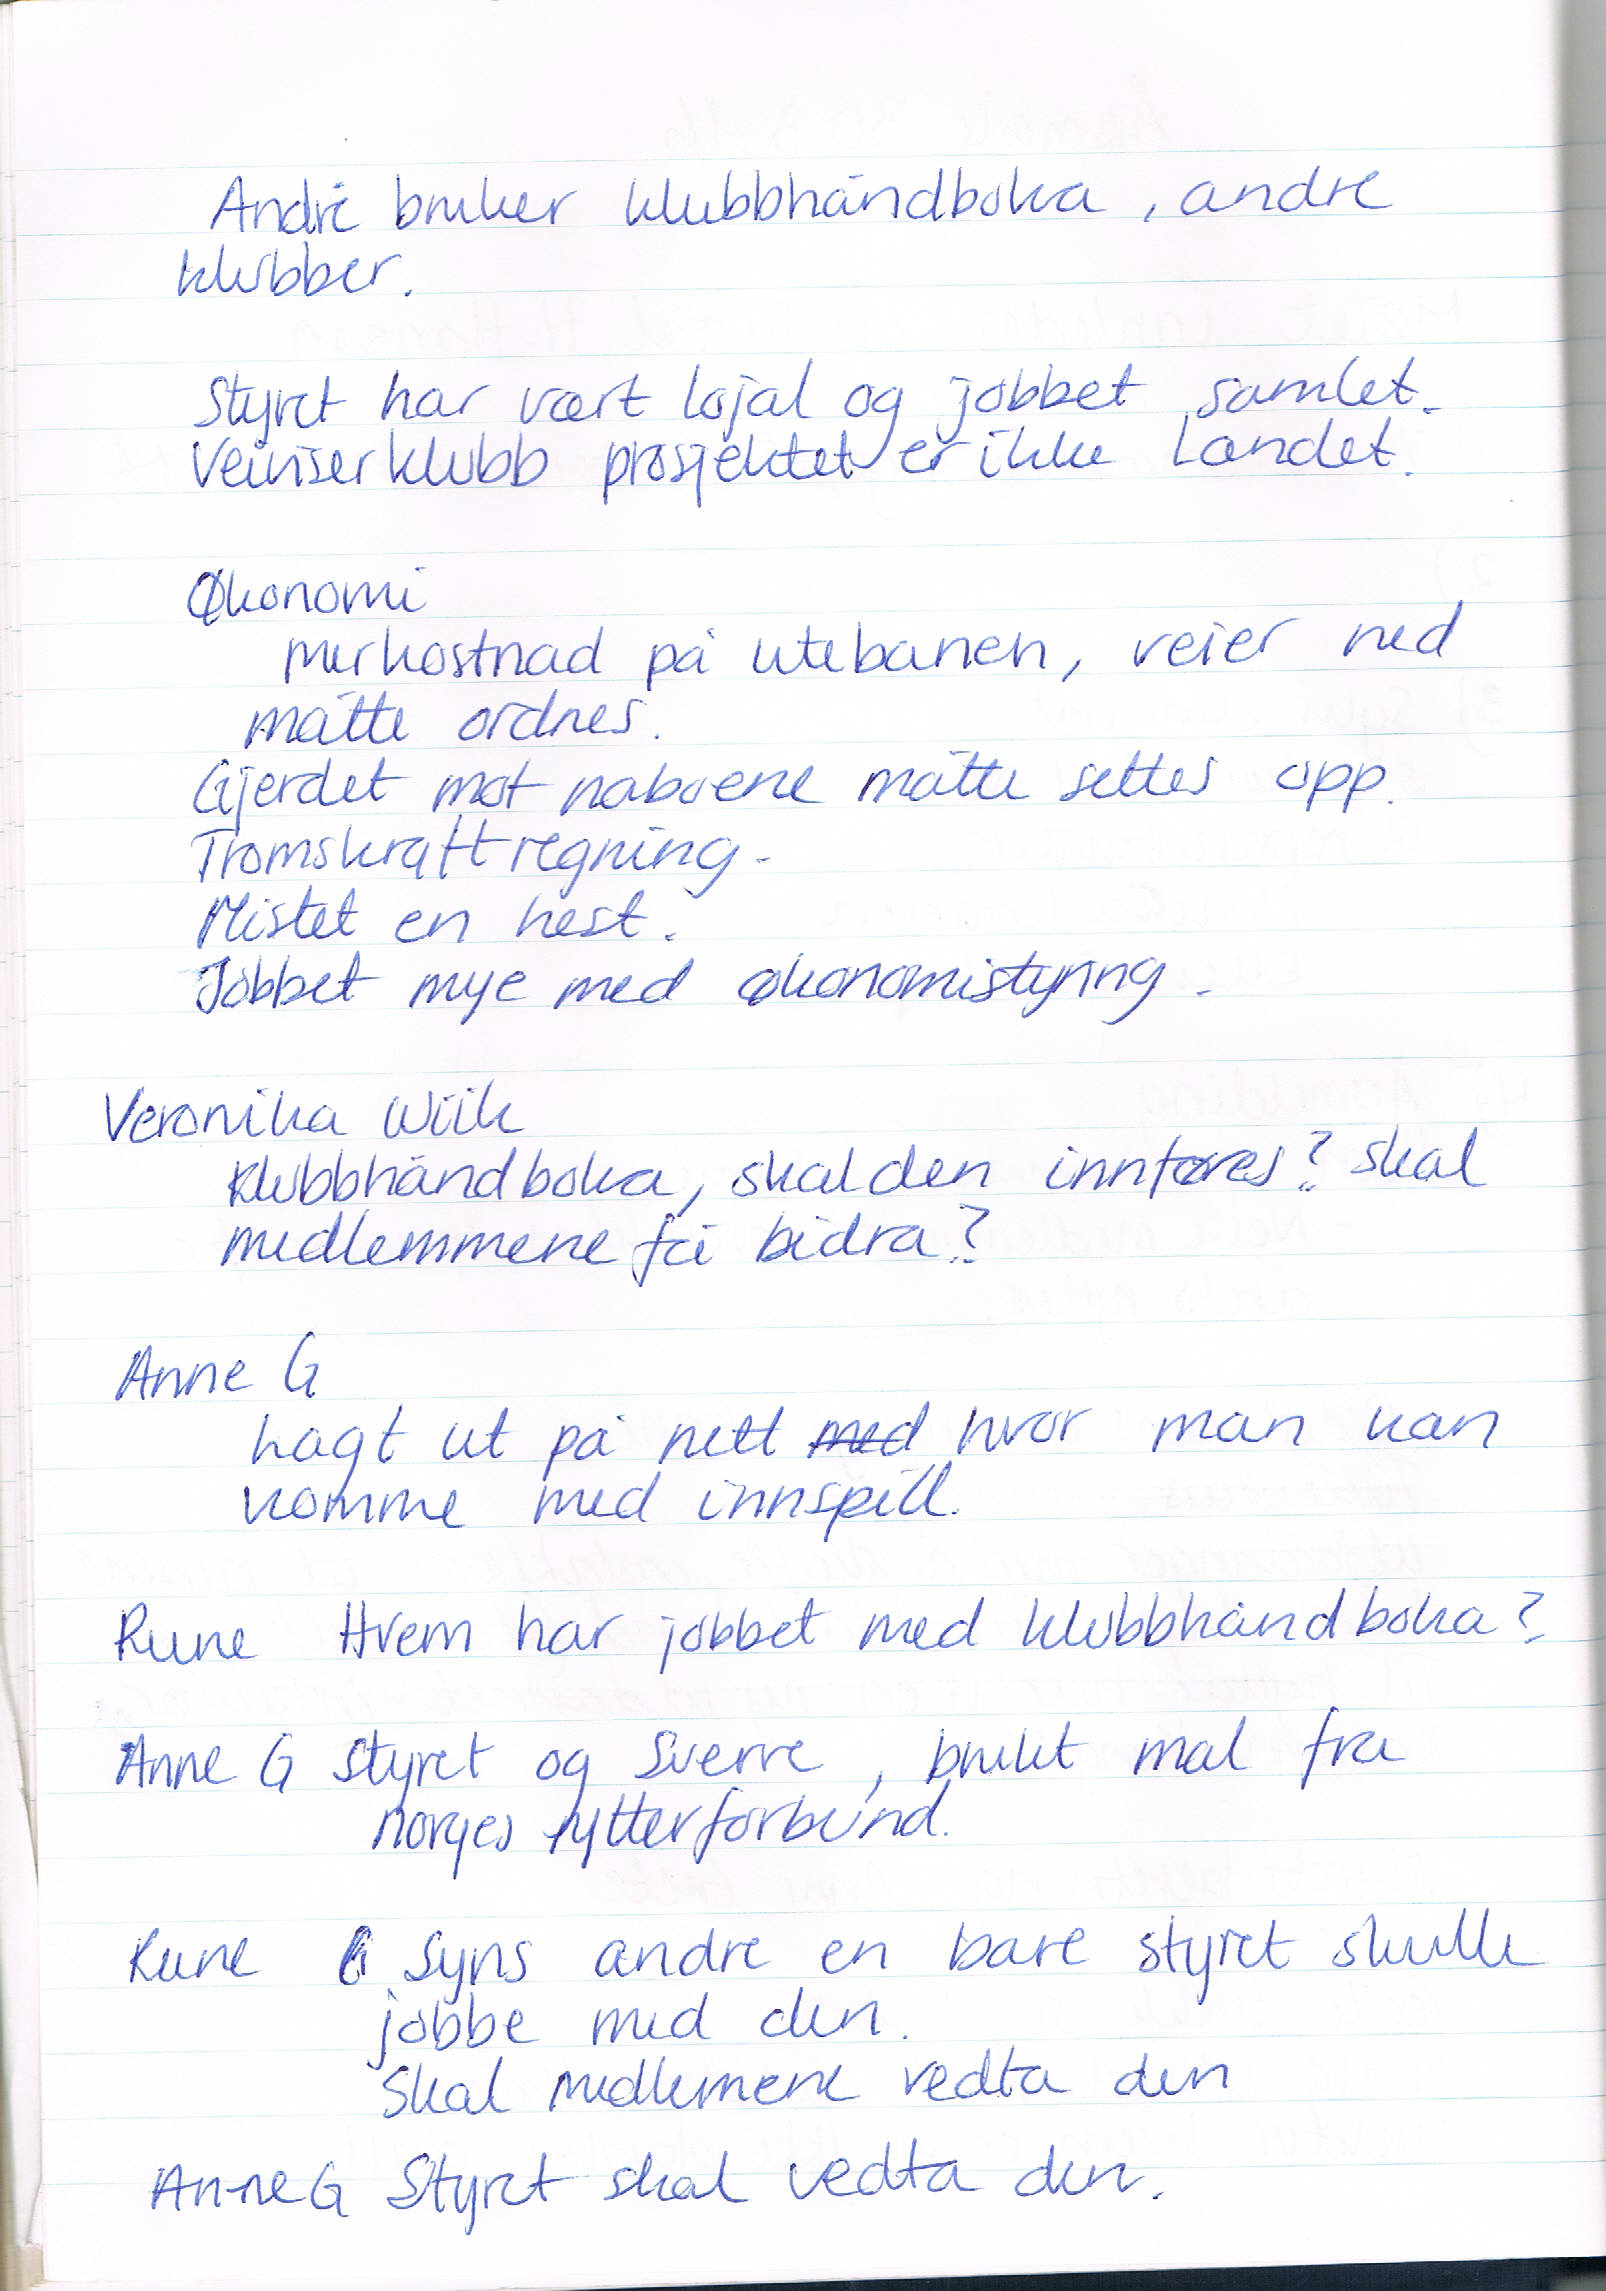 Andre bruker klubbhåndboka, andre
klubber.
Styret har vært lojal og jobbet samlet.
Veiviserklubb prosjektet er ikke landet.
Økonomi
merkostnad på utebanen, veier ned
måtte ordnes.
Gjerdet mot naboene måtte settes opp.
Tromskraft regning.
Mistet en hest.
Jobbet mye med økonomistyring.
Veronika Wiik
Klubbhåndboka, skal den innføres? skal
medlemmene få bidra?
Anne G
Lagt ut på nett med hvor man kan
komme med innspill.
Rune Hvem har jobbet med klubbhåndboka?
Anne G Styret og Sverre, brukt mal fra
norges rytterforbund.
Rune Syns andre en bare styret skulle
jobbe med den.
Skal medlemene vedta den
Anne G Styret skal vedta den.